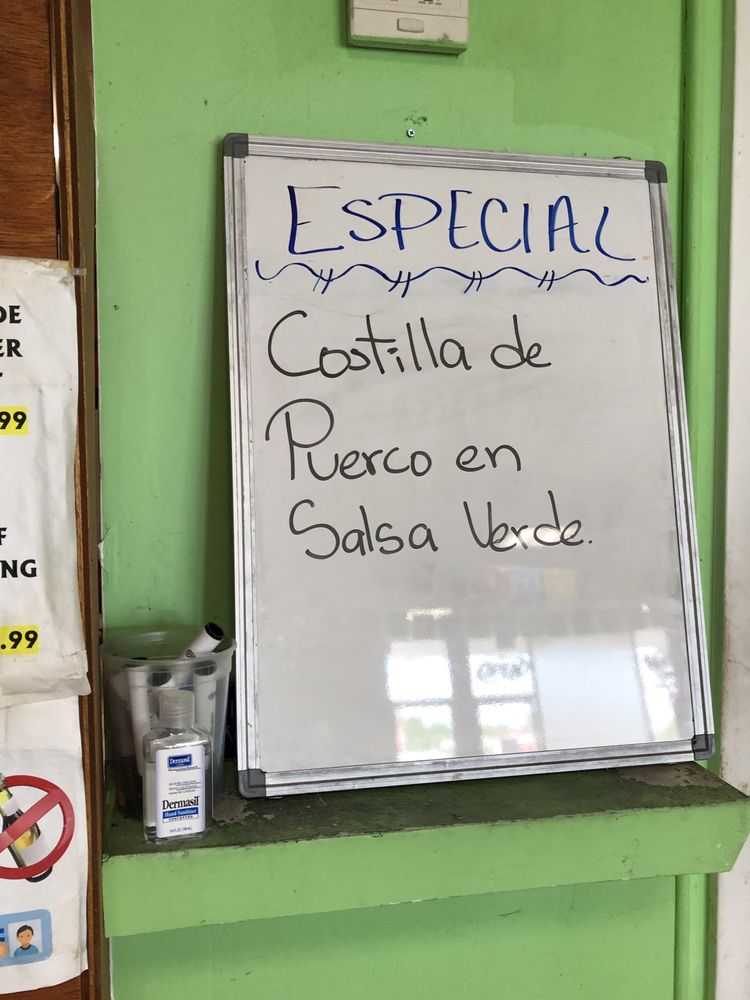 ESPECIAL
Costilla de
Puerco en
Salsa Verde.
DE
ER
99
F
NG
.99
Dermasil
Dermasil
Hand Sanitizer